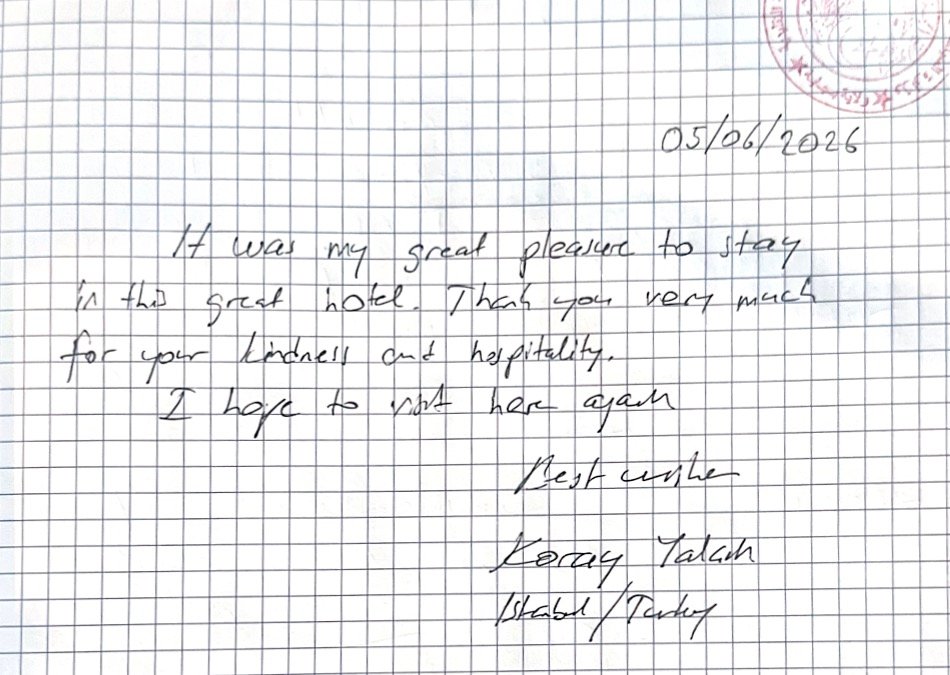 05/06/2026
It was my great pleasure to stay
in this great hotel. Thank you very much
for your kindness and hospitality.
I hope to visit here again
Best wishes
Koray Yalcin
Istanbul/Turkey